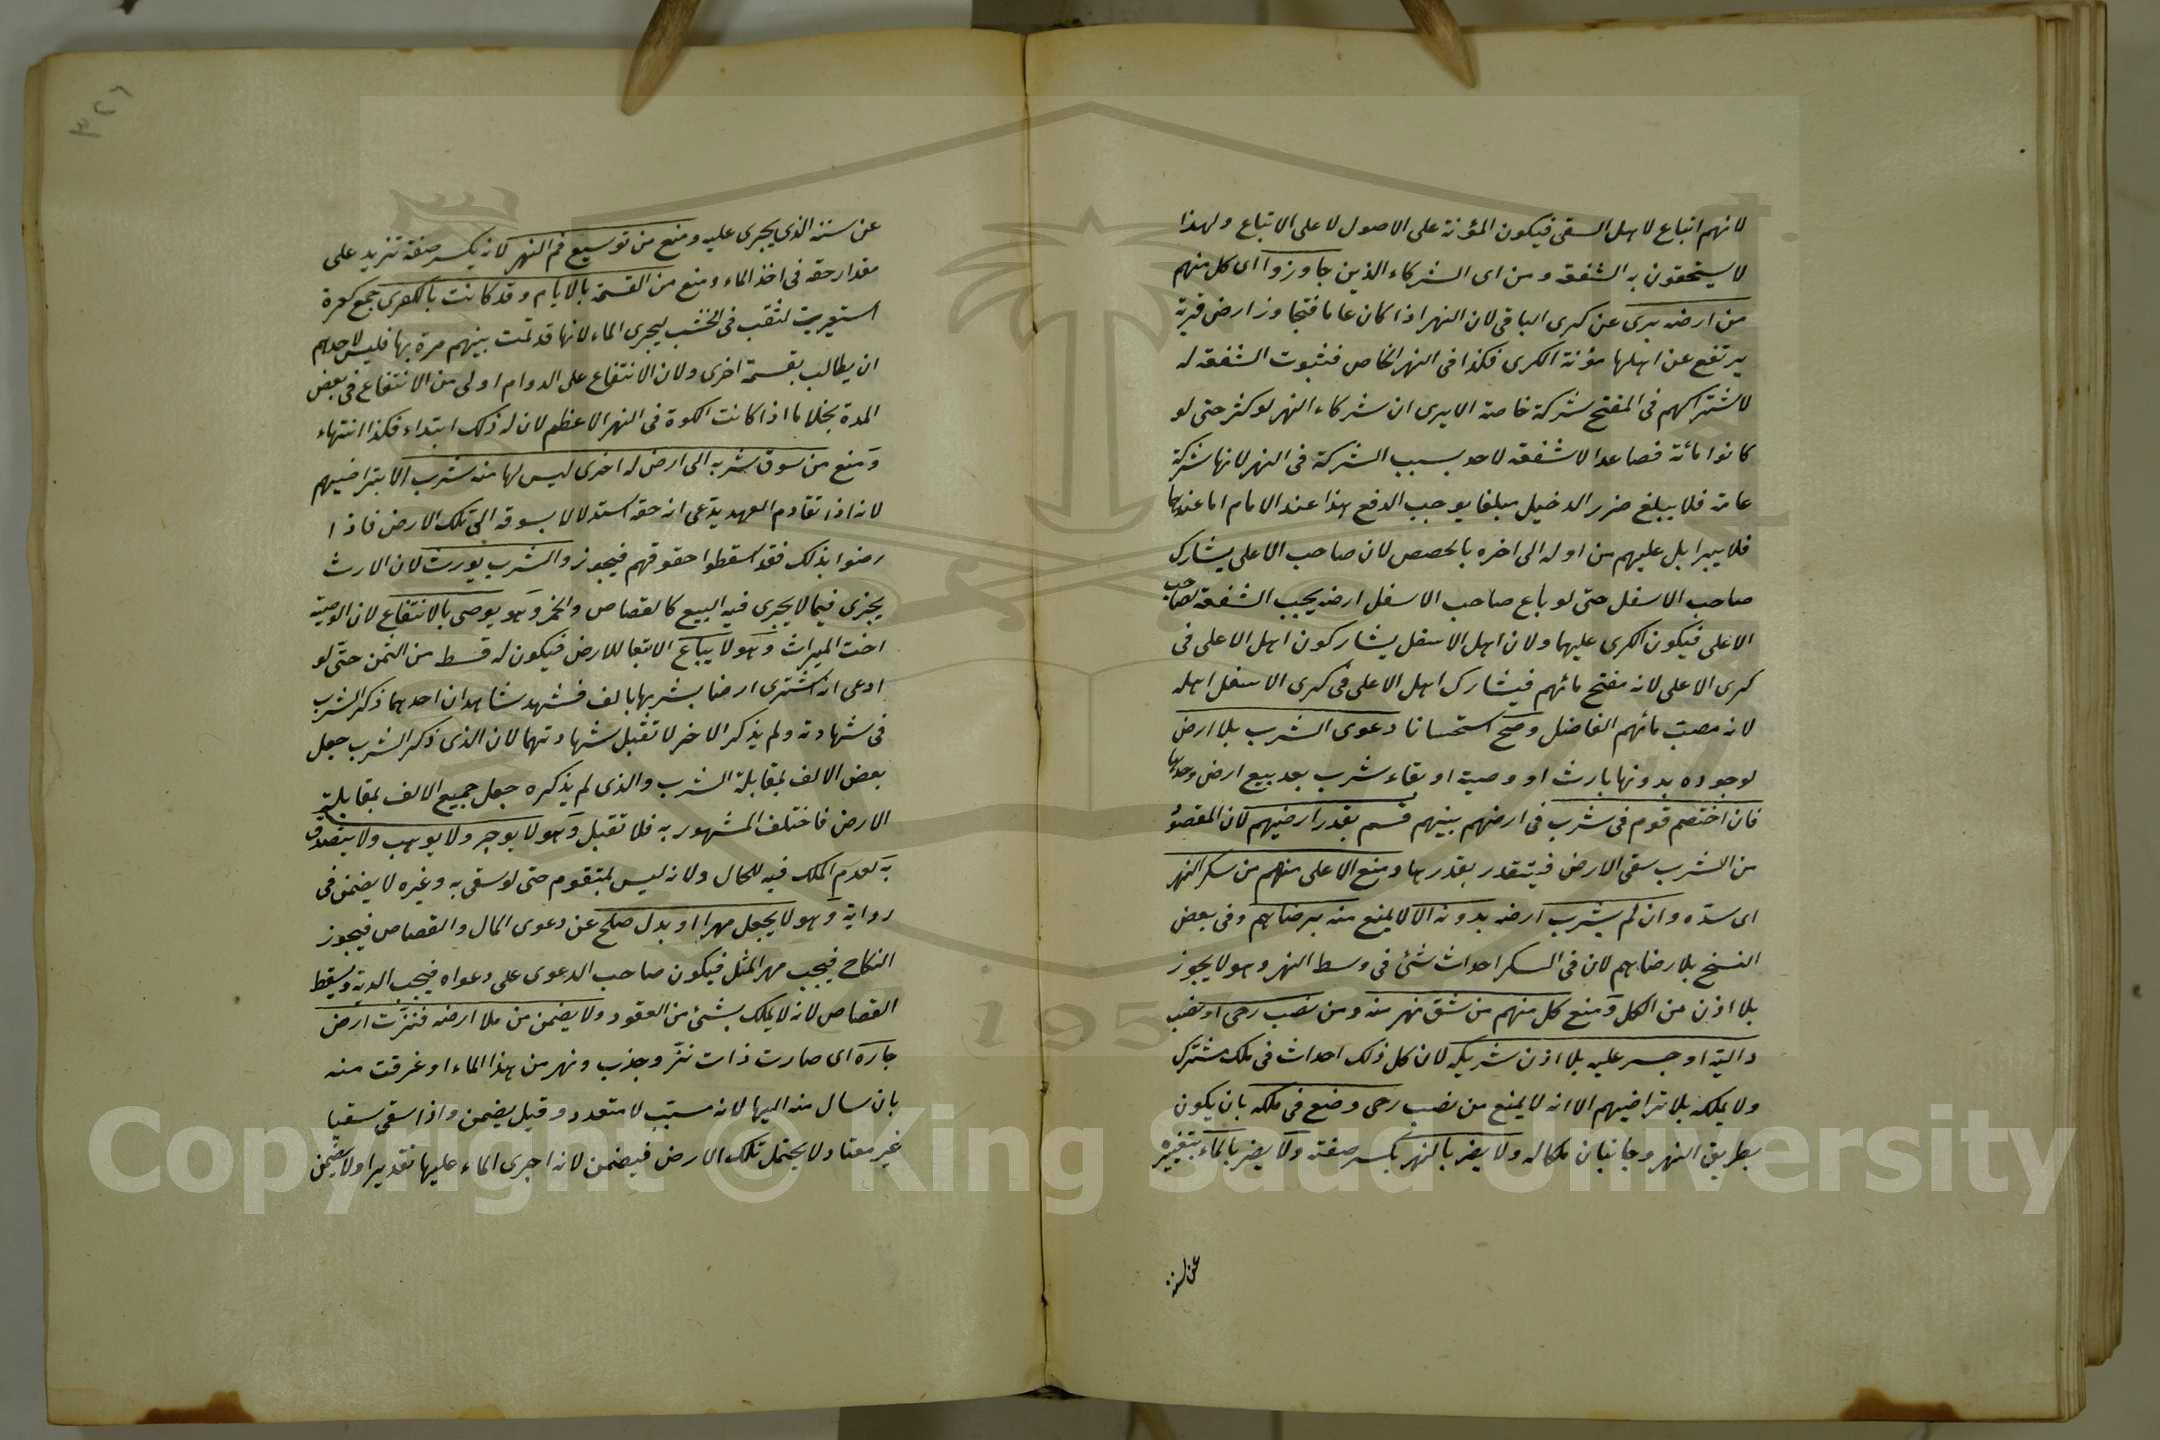 لانهم اتباع لاهل السقى فيكون المؤنة على الاصول لا على الاتباع ولهذا
لا يستحقون به الشفعة ومن اى الشركاء الذين جاوزوا اى كل منهم
من ارضه برى عن كرى الباقى لان النهر اذا كان عاما فتجاوز ارض قرية
يرتفع عن اهلها مؤنة الكرى فكذا فى النهر الخاص فثبوت الشفعة له
لاشتراكهم فى المفتح شركة خاصة الا يرى ان شركاء النهر لو كثر حتى لو
كانوا مائة فصاعدا لا شفعة لاحد بسبب الشركة فى النهر لانها شركة
عامة فلا يبلغ ضرر الدخيل مبلغا يوجب الدفع هذا عند الامام اما عندهما
فلا يبرا بل عليهم من اوله الى اخره بالحصص لان صاحب الاعلى يشارك
صاحب الاسفل حتى لو باع صاحب الاسفل ارضه يجب الشفعة لصاحب
الاعلى فيكون الكرى عليهما ولان اهل الاسفل يشاركون اهل الاعلى فى
كرى الاعلى لانه مفتح مائهم فيشارك اهل الاعلى فى كرى الاسفل اهله
لانه مصب مائهم الفاضل وصح استحسانا دعوى الشرب بلا ارض
لوجوده بدونها بارث او وصية او بقاء شرب بعد بيع ارض وحدها
فان اختصم قوم فى شرب فى ارضهم بينهم قسم بقدر ارضيهم لان المقصود
من الشرب سقى الارض فيتقدر بقدرها ومنع الاعلى منهم من سكر النهر
اى سده وان لم يشرب ارضه بدونه الا لا يمنع منه برضاهم وفى بعض
النسخ بلا رضاهم لان فى السكر احداث شئ فى وسط النهر وهو لا يجوز
بلا اذن من الكل ومنع كل منهم من شق نهر منه ومن نصب رحى او نصب
دالية او جسر عليه بلا اذن شريكه لان كل ذلك احداث فى ملك مشترك
ولا يملكه بلا تراضيهم الا انه لا يمنع من نصب رحى وضع فى ملكه بان يكون
بطريق النهر وجانبان ملكا له ولا يضر بالنهر بكسر ضفته ولا يضر بالماء بتغييره
عن سننه
عن سننه الذى يجرى عليه ومنع من توسيع فم النهر لانه يكسر ضفة تزيد على
مقدار حقه فى اخذ الماء ومنع من القسمة بالايام وقد كانت بالكوى جمع كوة
استعيرت لثقب فى الخشب ليجرى الماء لانها قد تمت بينهم مرة بها فليس لاحدهم
ان يطالب بقسمة اخرى ولان الانتفاع على الدوام اولى من الانتفاع فى بعض
المدة بخلاف ما اذا كانت الكوة فى النهر الاعظم لان له ذلك ابتداء فكذا انتهاء
ومنع من سوق شربه الى ارض له اخرى ليس لها منه شرب الا بتراضيهم
لانه اذا تقادم العهد يدعى انه حقه استدلالا بسوقه الى تلك الارض فاذا
رضوا بذلك فقد اسقطوا حقوقهم فيجوز والشرب يورث لان الارث
يجزى فيما لا يجرى فيه البيع كالقصاص والخمر وهو يوصى بالانتفاع لان الوصية
اخت الميراث وهو لا يباع الا تبعا للارض فيكون له قسط من الثمن حتى لو
ادعى انه اشترى ارضا بشربها بالف فشهد شاهدان احدهما ذكر الشرب
فى شهادته ولم يذكر الاخر لا تقبل شهادتهما لان الذى ذكر الشرب جعل
بعض الالف بمقابلة الشرب والذى لم يذكره جعل جميع الالف بمقابلة
الارض فاختلف المشهور به فلا تقبل وهو لا يوجر ولا يوهب ولا يتصدق
به لعدم الملك فيه للحال ولانه ليس بمتقوم حتى لو سقى به وغيره لا يضمن فى
رواية وهو لا يجعل مهرا او بدل صلح عن دعوى المال والقصاص فيجوز
النكاح فيجب مهر المثل فيكون صاحب الدعوى على دعواه فيجب الدية ويسقط
القصاص لانه لا يملك بشئ من العقود ولا يضمن من ملا ارضه فنزت ارض
جاره اى صارت ذات نز وجذب ونهر من هذا الماء او غرقت منه
بان سال منه اليها لانه مسبب لا متعدد وقيل يضمن واذا سقى سقيا
غير معتاد لا يحتمل تلك الارض فيضمن لانه اجرى الماء عليها تقديرا ولا يضمن
٣٢٦
Copyright © King Saud University
195